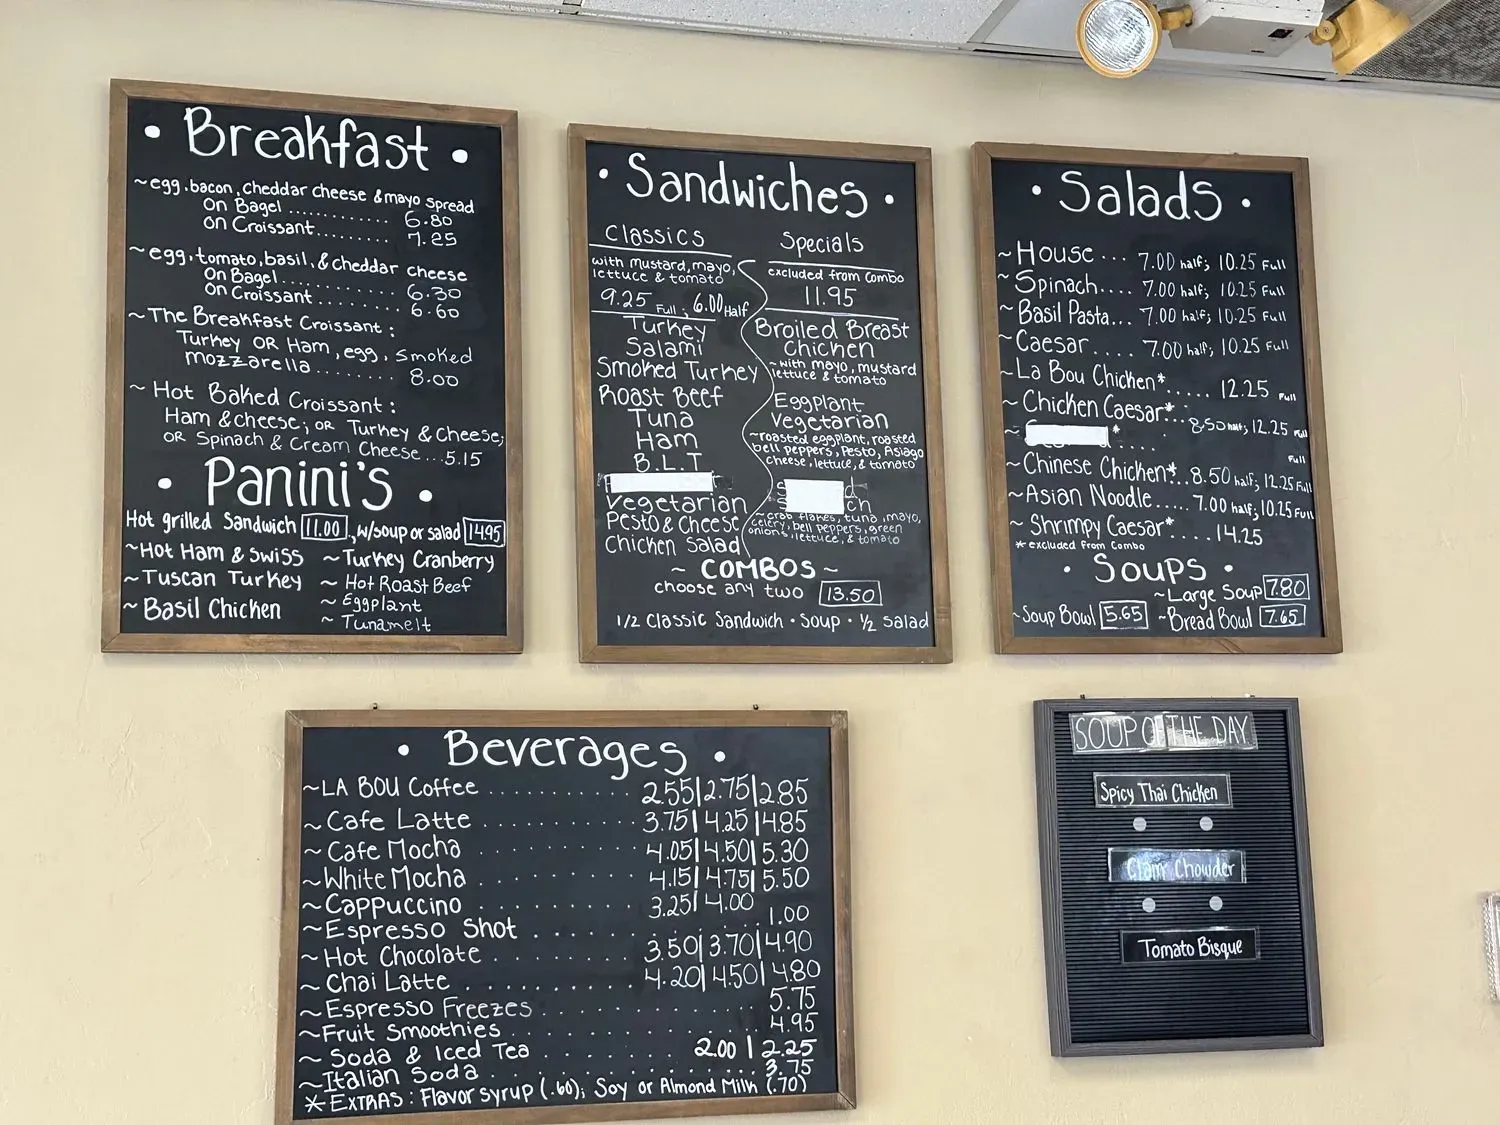 • Breakfast •
~egg, bacon, cheddar cheese & mayo spread
on Bagel ............ 6.80
on Croissant ......... 7.25
~egg, tomato, basil, & cheddar cheese
on Bagel ............ 6.30
on Croissant ......... 6.60
~The Breakfast Croissant:
Turkey OR Ham, egg, smoked
mozzarella ......... 8.00
~Hot Baked Croissant:
Ham & cheese; or Turkey & Cheese;
OR Spinach & Cream Cheese ...5.15
• Panini's •
Hot grilled Sandwich 11.00, w/soup or salad 14.95
~Hot Ham & Swiss
~Tuscan Turkey
~Basil Chicken
~Turkey Cranberry
~Hot Roast Beef
~Eggplant
~Tunamelt
• Sandwiches •
Classics
with mustard, mayo,
lettuce & tomato
9.25 Full; 6.00 Half
Turkey
Salami
Smoked Turkey
Roast Beef
Tuna
Ham
B.L.T
Vegetarian
Pesto & Cheese
Chicken Salad
Specials
excluded from combo
11.95
Broiled Breast
Chicken
~with mayo, mustard
lettuce & tomato
Eggplant
Vegetarian
~roasted eggplant, roasted
bell peppers, Pesto, Asiago
cheese, lettuce, & tomato
~crab flakes, tuna, mayo,
celery, bell peppers, green
onions, lettuce, & tomato
~ COMBOS ~
choose any two 13.50
1/2 Classic Sandwich • Soup • 1/2 salad
• Salads •
~House ... 7.00 half; 10.25 Full
~Spinach.... 7.00 half; 10.25 Full
~Basil Pasta... 7.00 half; 10.25 Full
~Caesar.... 7.00 half; 10.25 Full
~La Bou Chicken*..... 12.25 Full
~Chicken Caesar*... 8.50 half; 12.25 Full
~ * Full
~Chinese Chicken*...8.50 half; 12.25 Full
~Asian Noodle..... 7.00 half; 10.25 Full
~Shrimpy Caesar*.... 14.25
*excluded from Combo
• Soups •
~Large Soup 7.80
~Soup Bowl 5.65 ~Bread Bowl 7.65
• Beverages •
~LA BOU Coffee .......... 2.55|2.75|2.85
~Cafe Latte .......... 3.75|4.25|4.85
~Cafe Mocha .......... 4.05|4.50|5.30
~White Mocha .......... 4.15|4.75|5.50
~Cappuccino .......... 3.25|4.00
~Espresso Shot .......... 1.00
~Hot Chocolate .......... 3.50|3.70|4.90
~Chai Latte .......... 4.20|4.50|4.80
~Espresso Freezes .......... 5.75
~Fruit Smoothies .......... 4.95
~Soda & Iced Tea .......... 2.00|2.25
~Italian Soda .......... 3.75
*EXTRAS: Flavor syrup (.60); Soy or Almond Milk (.70)
SOUP OF THE DAY
Spicy Thai Chicken
Clam Chowder
Tomato Bisque